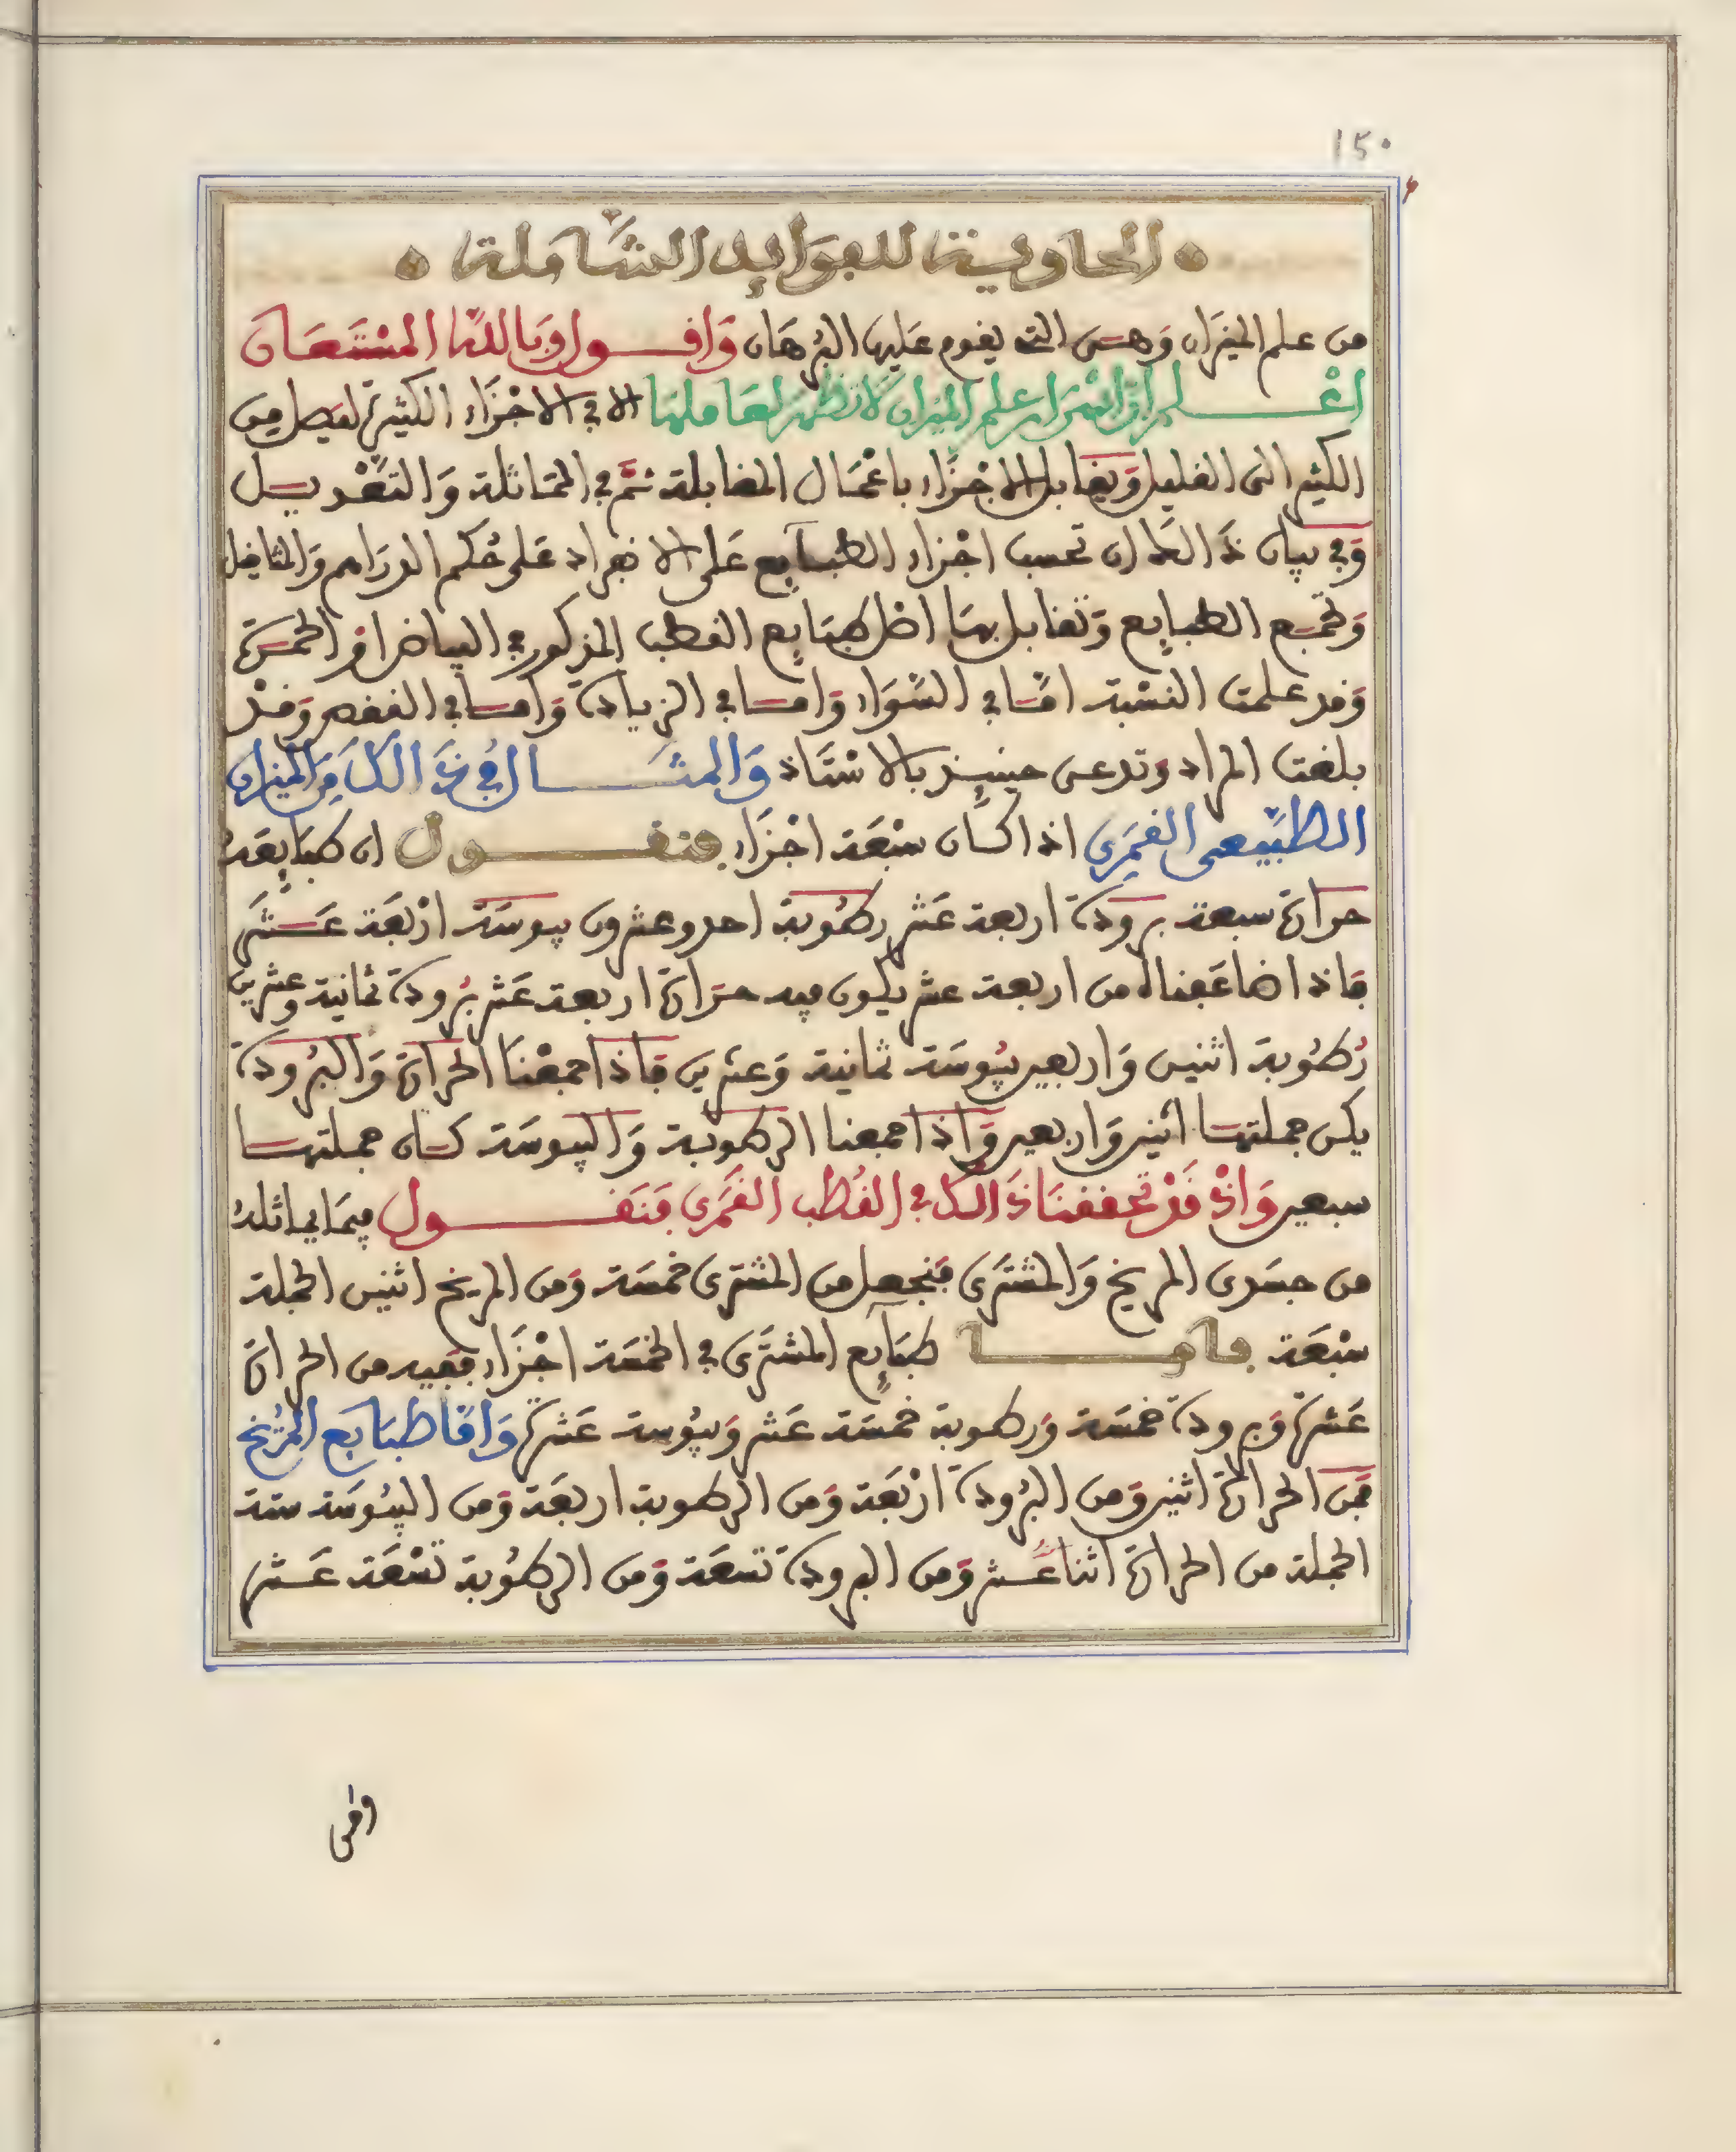 ١٥٠
الحاوية للفوايد الشاملة
من علم الميزان وَهى التى يقوم عَليها البُرهَان وَاقـول وَبالله المسْتَعَان
اعْـلم ان اسْرَار علم الميزان لا تظهر لعَاملها الا في الاجْزَاء الكثيرة ليصل من
الكثير الى القليل وَيقابل الاجْزَاء باعْمَال المقابلة ثمَّ في المماثلة وَالتعْديـل
وَفي بيان ذَالك ان تحسب اجْزاء الطبـايع عَلى الانفراد عَلى حُكم الدرَاهم وَالمثاقيل
وَتجمع الطبايع وَتقابل بهَا اصْل طبَايع القطب المذكور في البياض او الحمـرَة
وَقد علمت النسْبة امَّا في السَّوَاء وَامـا في الزيادة وَامـا في النقص وَقدْ
بلغت المراد وَتدعى حينيـذ بالاسْتَاذ وَالمثـال في ذَالكَ مِنَ الميزان
الطبيعى القمَري اذا كـان سبْعَة اجْزَاء فنقـول ان طبَايعَهُ
حرارة سبعة برودة اربعة عَشر رطوبة احد وعشرون يبوسَة ارْبعَة عَـشَر
فاذا ضاعَفناه من اربعة عشر يكون فيه حرَارة اربعة عَشر بُرودة ثمانية وعشرين
رُطوبة اثنين وَاربعين يبُوسَة ثمانية وَعشرين فاذا جمعْنَا الحرارة وَالبُرودة
يكن جملتهـا اثنين وَاربعين وَاذا جمعنا الرطوبة وَاليبوسَة كـان جملتهـا
سبعين وَاذْ قَدْ تحققنَا ذَالك في القُطب القَمَري فَنَقـول فيمَا يماثلهُ
من جسَدي المريخ وَالمشتَرى فنجعل من المشترى خمسَة وَمن المريخ اثنين الجملة
سبْعَة فـامـا طبَايع المشترَى في الخمسَة اجْزَاء ففيه من الحرارة
عَشرة وَبرودة خمسَة وَرطوبة خمسَة عَشر وَيبُوسة عَشرة وَامَّا طبَايَع المرّيخ
فمن الحرارة اثنين وَمن البُرودة ارْبعَة وَمن الرطوبة اربعَة وَمن اليبُوسَة ستة
الجملة من الحرارة اثنا عَـشر وَمن البرودة تسعَة وَمن الرطُوبة تسْعَة عَـشر
ومن